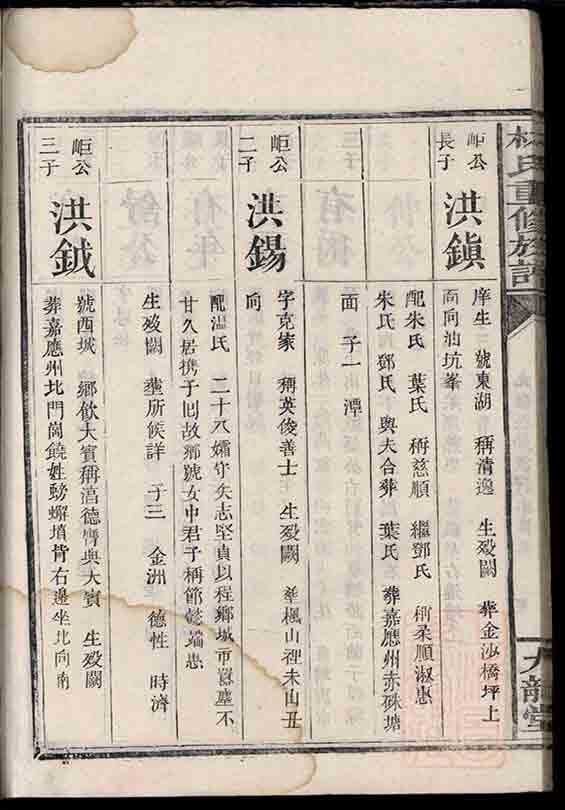 林氏重修族譜
九龍堂
岠公
長子
洪鎮
庠生 號東湖 稱清逸 生歿闕 葬金沙橋坪上
向向油坑峯
配朱氏 葉氏 稱慈順 繼鄧氏 稱柔順淑惠
朱氏 鄧氏 與夫合葬 葉氏 葬嘉應州赤硃塘
面 子一 潭
岠公
二子
洪錫
字克家 稱英俊善士 生歿闕 葬楓山裡未山丑
向
配温氏 二十八孀守矢志堅貞以程鄉城市囂塵不
甘久居携子回故鄉號女中君子稱節懿端惠
生歿闕 塟所候詳 子三 金洲 德性 時濟
岠公
三子
洪鉞
號西城 鄉飲大賓稱菖德齊與大賓 生歿闕
葬嘉應州北門崗饒姓螃蠏墳背右邊坐北向南